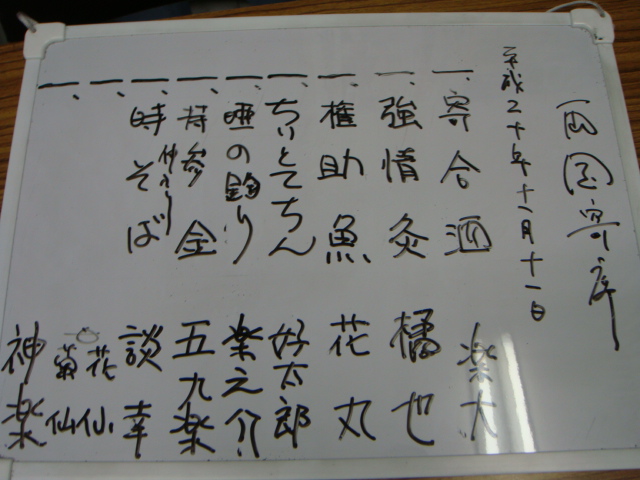 両国寄席
平成二十年十一月十一日
一、寄合酒 楽大
一、強情灸 橘也
一、権助魚 花丸
一、ちりとてちん 好太郎
一、唖の釣り 楽之介
一、持参金 五九楽
仲入り
一、時そば 談幸
一、花仙
菊仙
一、神楽